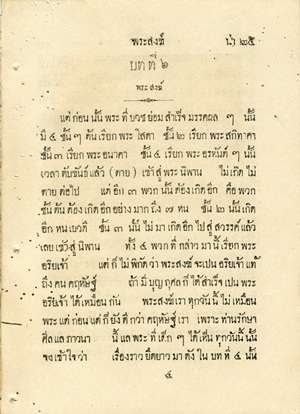 พระสงฆ์ น่า ๒๕
บท ที่ ๖
พระ สงฆ์
แต่ ก่อน นั้น พระ ที่ บวช ย่อม สำเร็จ มรรคผล ๆ นั้น
มี ๔ ชั้น ๆ ต้น เรียก พระ โสดา ชั้น ๒ เรียก พระ สกิทาคา
ชั้น ๓ เรียก พระ อนาคา ชั้น ๔ เรียก พระ อรหันต์ ๆ นั้น
เวลา ดับขันธ์ แล้ว ( ตาย ) เข้า สู่ พระ นิพาน ไม่ เกิด ไม่
ตาย ต่อไป แต่ อีก ๓ พวก นั้น ต้อง เกิด อีก คือ พวก
ชั้น ต้น ต้อง เกิด อีก อย่าง มาก ถึง ๗ หน ชั้น ๒ นั้น เกิด
อีก หน เดียว ชั้น ๓ นั้น ไม่ มา เกิด อีก ไป สู่ สวรรค์ แล้ว
เลย เข้า สู่ นิพาน ทั้ง ๔ พวก ที่ กล่าว มา นี้ เรียก พระ
อริยเจ้า แต่ ก็ ไม่ พิกัด ว่า พระสงฆ์ จะเปน อริยเจ้า แท้
ถึง คน คฤหัษฐ์ ถ้า มี บุญ กุศล ก็ ได้ สำเร็จ เปน พระ
อริยเจ้า ได้ เหมือน กัน พระสงฆ์ เรา ทุก วัน นี้ ไม่ เหมือน
พระ แต่ ก่อน แต่ ก็ ยัง ดี กว่า คฤหัษฐ์ เรา เพราะ ท่าน รักษา
ศีล แล ภาวนา นี้ แล พระ ที่ เด็ก ๆ ได้ เห็น ทุก วัน นี้ นั้น
จง เข้าใจ ว่า เรื่อง ราว ยืดยาว มา ดัง ใน บท ที่ ๔ นั้น
๔